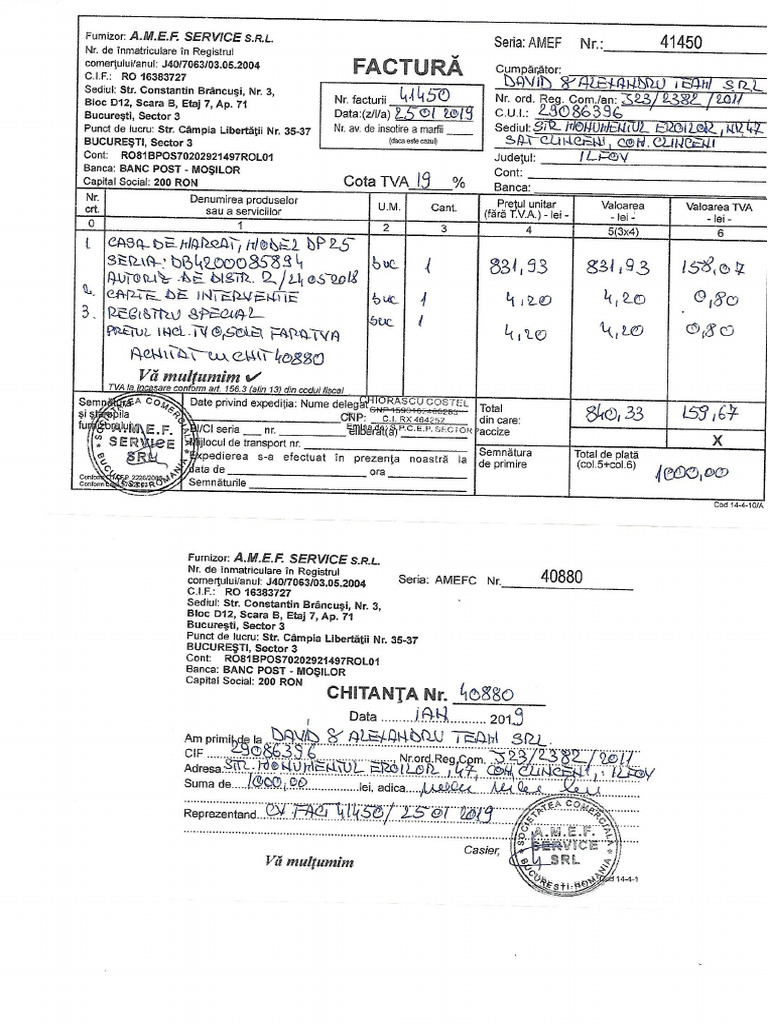 Furnizor: A.M.E.F. SERVICE S.R.L.
Nr. de înmatriculare în Registrul
comerţului/anul: J40/7063/03.05.2004
C.I.F.: RO 16383727
Sediul: Str. Constantin Brâncuşi, Nr. 3,
Bloc D12, Scara B, Etaj 7, Ap. 71
Bucureşti, Sector 3
Punct de lucru: Str. Câmpia Libertăţii Nr. 35-37
BUCUREŞTI, Sector 3
Cont: RO81BPOS70202921497ROL01
Banca: BANC POST - MOŞILOR
Capital Social: 200 RON
FACTURĂ
Nr. facturii 41450
Data:(z/l/a) 25 01 2019
Nr. av. de insotire a marfii
(daca este cazul)
Cota TVA 19 %
Seria: AMEF Nr.: 41450
Cumpărător:
DAVID & ALEXANDRU TEAM SRL
Nr. ord. Reg. Com./an: J23/2382/2011
C.U.I.: 29086396
Sediul: STR MONUMENTUL EROILOR, NR 47
SAT CLINCENI, COM. CLINCENI
Judeţul: ILFOV
Cont:
Banca:
Nr. crt. Denumirea produselor sau a serviciilor U.M. Cant. Preţul unitar (fără T.V.A.) - lei - Valoarea - lei - Valoarea TVA - lei -
0 1 2 3 4 5(3x4) 6
1 CASA DE MARCAT, MODEL DP 25
SERIA: DB4200085894 buc 1 831,93 831,93 158,07
AUTORIZ. DE DISTR. 2/24052018
2. CARTE DE INTERVENTIE buc 1 4,20 4,20 0,80
3. REGISTRU SPECIAL buc 1 4,20 4,20 0,80
PRETUL INCL. TVA, 5 LEI FARA TVA
ACHITAT cu CHIT 40880
Vă mulţumim ✓
TVA la încasare conform art. 156.3 (alin 13) din codul fiscal
Semnătura
şi ştampila
furnizorului
SOCIETATEA COMERCIALĂ
A.M.E.F.
SERVICE
SRL
BUCUREŞTI-ROMANIA
Date privind expediţia: Nume delegat CHIORASCU COSTEL
CNP:
C.I. RX 464257
BI/CI seria nr. eliberat(a) S.P.C.E.P. SECTOR
Mijlocul de transport nr.
Expedierea s-a efectuat în prezenţa noastră la
data de ora
Semnăturile
Total
din care:
accize
840,33 159,67
X
Semnătura
de primire
Total de plată
(col.5+col.6)
1000,00
Cod 14-4-10/A
Furnizor: A.M.E.F. SERVICE S.R.L.
Nr. de înmatriculare în Registrul
comerţului/anul: J40/7063/03.05.2004
C.I.F.: RO 16383727
Sediul: Str. Constantin Brâncuşi, Nr. 3,
Bloc D12, Scara B, Etaj 7, Ap. 71
Bucureşti, Sector 3
Punct de lucru: Str. Câmpia Libertăţii Nr. 35-37
BUCUREŞTI, Sector 3
Cont: RO81BPOS70202921497ROL01
Banca: BANC POST - MOŞILOR
Capital Social: 200 RON
Seria: AMEFC Nr. 40880
CHITANŢA Nr. 40880
Data IAN 2019
Am primit de la DAVID & ALEXANDRU TEAM SRL
CIF 29086396 Nr.ord.Reg.Com. J23/2382/2011
Adresa STR. MONUMENTUL EROILOR, 47, COM CLINCENI, ILFOV
Suma de 1000,00 lei, adica
Reprezentand CV FACT 41450/25 01 2019
Casier,
SOCIETATEA COMERCIALĂ
A.M.E.F.
SERVICE
SRL
BUCUREŞTI-ROMANIA
Vă mulţumim
Cod 14-4-1